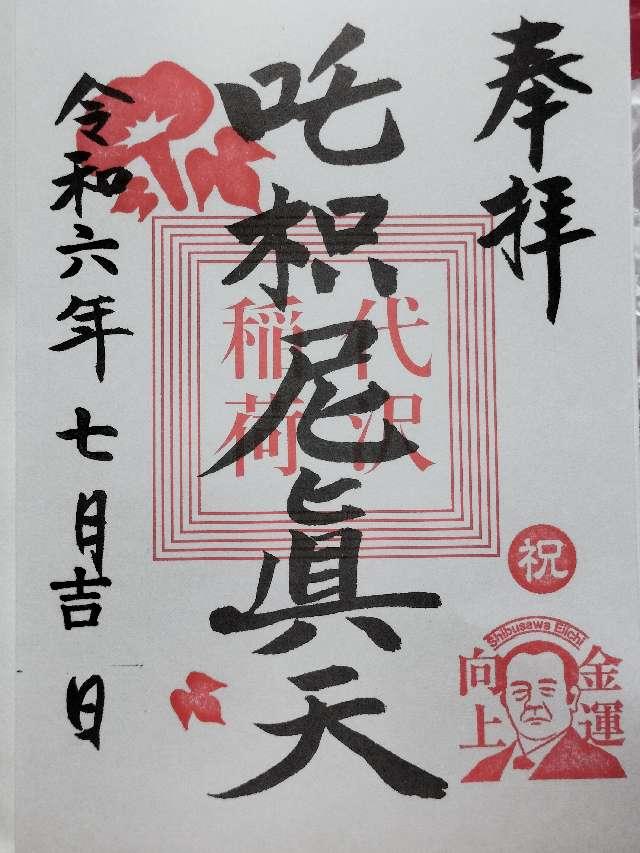 奉拝
代沢
稲荷
吒枳尼眞天
令和六年七月吉日
祝
Shibusawa Eiichi
金運
向上